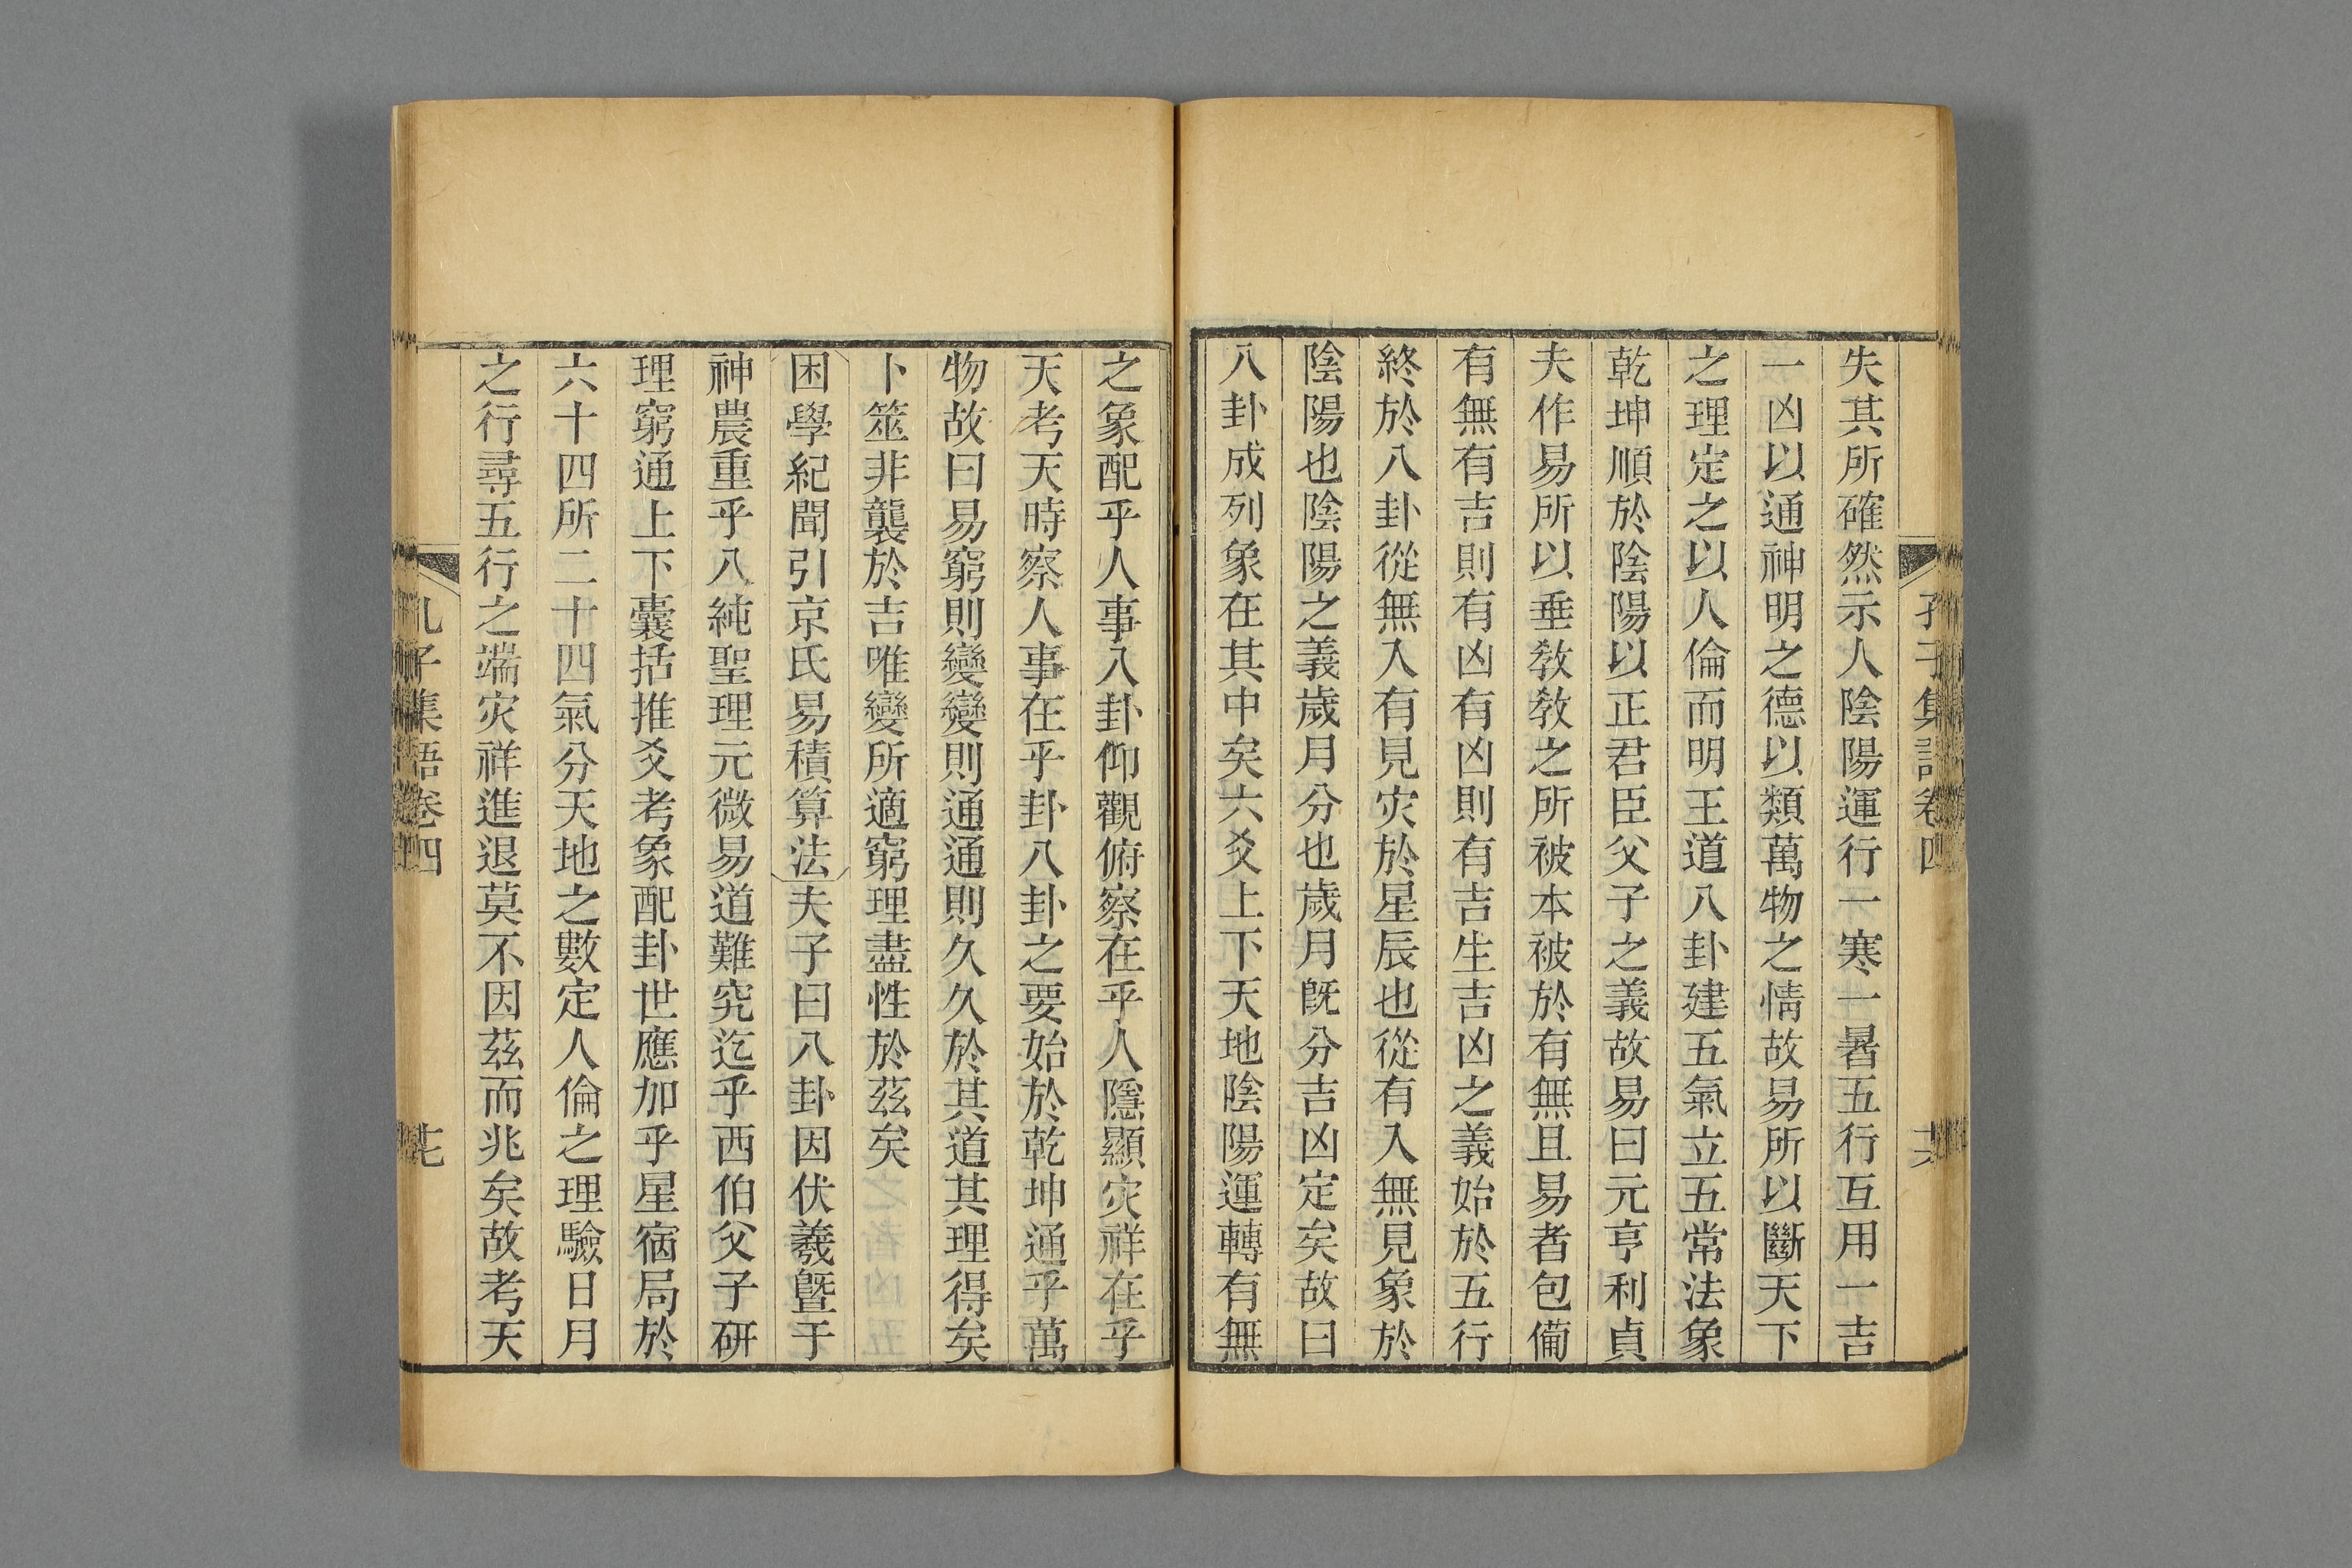 孔子集語卷四
失其所確然示人陰陽運行一寒一暑五行互用一吉
一凶以通神明之德以類萬物之情故易所以斷天下
之理定之以人倫而明王道八卦建五氣立五常法象
乾坤順於陰陽以正君臣父子之義故易曰元亨利貞
夫作易所以垂敎敎之所被本被於有無且易者包備
有無有吉則有凶有凶則有吉生吉凶之義始於五行
終於八卦從無入有見灾於星辰也從有入無見象於
陰陽也陰陽之義歲月分也歲月旣分吉凶定矣故曰
八卦成列象在其中矣六爻上下天地陰陽運轉有無
之象配乎人事八卦仰觀俯察在乎人隱顯灾祥在乎
天考天時察人事在乎卦八卦之要始於乾坤通乎萬
物故曰易窮則變變則通通則久久於其道其理得矣
卜筮非襲於吉唯變所適窮理盡性於茲矣
困學紀聞引京氏易積算法夫子曰八卦因伏羲曁于
神農重乎八純聖理元微易道難究迄乎西伯父子研
理窮通上下囊括推爻考象配卦世應加乎星宿局於
六十四所二十四氣分天地之數定人倫之理驗日月
之行尋五行之端灾祥進退莫不因茲而兆矣故考天
孔子集語卷四